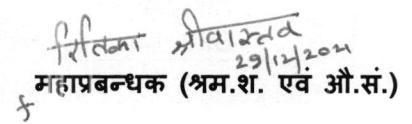 रितिका श्रीवास्तव
29/12/2021
महाप्रबन्धक (श्रम.श. एवं औ.सं.)